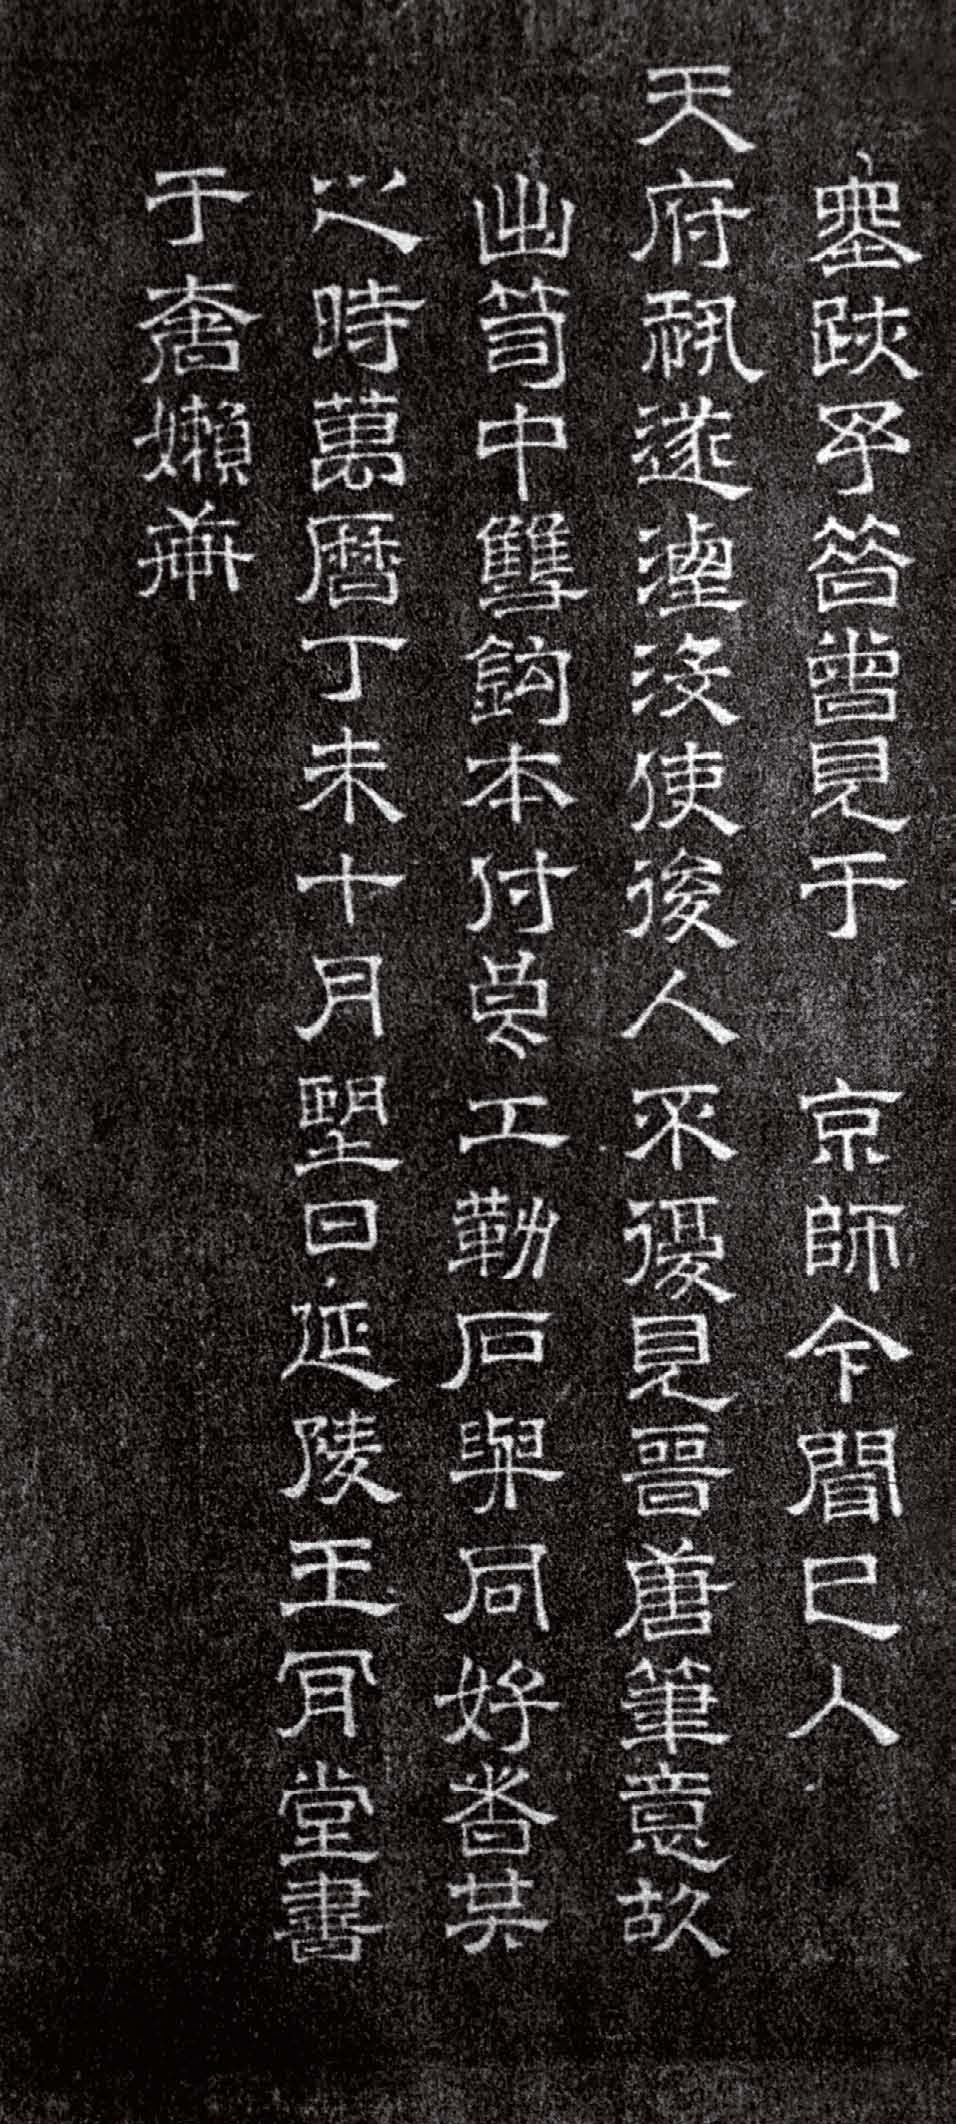 墨跡予昔曾見于 京師今聞已入
天府恐遂湮沒使後人不復見晉唐筆意故
出笥中雙鉤本付良工勒石與同好者共
之時萬曆丁未十月朢日延陵王肎堂書
于嬾